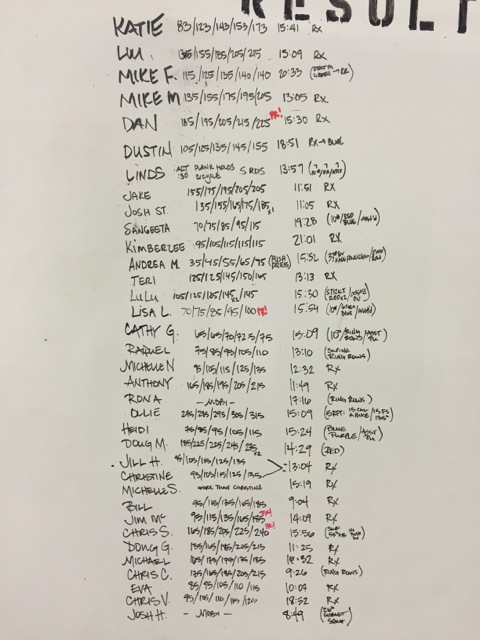 RESULT
KATIE 83/123/143/153/173 15:41 RX
LIU 135/155/185/205/215 15:09 RX
MIKE F. 115/125/135/140/140 20:33
MIKE M 135/155/175/195/205 13:05 RX
DAN 185/195/205/215/225 PR! 15:30 RX
DUSTIN 105/125/135/145/155 18:51 RX→BLUE
LINDS ALT :30 PLANK HOLDS BICYCLE 5 RDS 13:57
JAKE 155/175/195/205/205 11:51 RX
JOSH ST. 135/155/165/175/185 11:05 RX
SANGEETA 70/75/85/95/115 19:28
KIMBERLEE 95/105/115/115/115 21:01 RX
ANDREA M. 35/45/55/65/75 (PUSH PRESS) 15:52
TERI 125/125/145/150/165 13:13 RX
LULU 105/125/135/145/145 15:30
LISA L. 70/75/85/95/100 PR! 15:54
CATHY G. 65/65/70/72.5/75 15:09
RAQUEL 75/85/95/105/110 13:10 (RING ROWS)
MICHELLE N 95/105/115/125/135 12:32 RX
ANTHONY 165/185/195/205/215 11:49 RX
RON A - MOBI - 17:16 (RING ROWS)
OLLIE 245/265/295/305/315 15:09
HEIDI 75/85/95/105/115 15:24
DOUG M. 185/225/225/245/255 14:29 (RED)
JILL H. 95/105/115/125/135
13:04 RX
CHRISTINE 95/105/115/125/135
MICHELLE S. MORE THAN CHRISTINE 15:19 RX
BILL 95/115/135/165/185 9:04 RX
JIM MC 95/115/135/165/185 PR! 14:09 RX
CHRIS S. 165/185/205/225/240 PR! 15:56
DOUG G. 155/165/185/205/215 11:25 RX
MICHAEL 165/175/175/175/185 RX
CHRIS C. 175/165/185/205/215 9:26 (RING ROWS)
EVA 85/95/105/110/115 10:04 RX
CHRIS V. 95/105/110/115/125 18:52 RX
JOSH H. - MOBI - 8:49